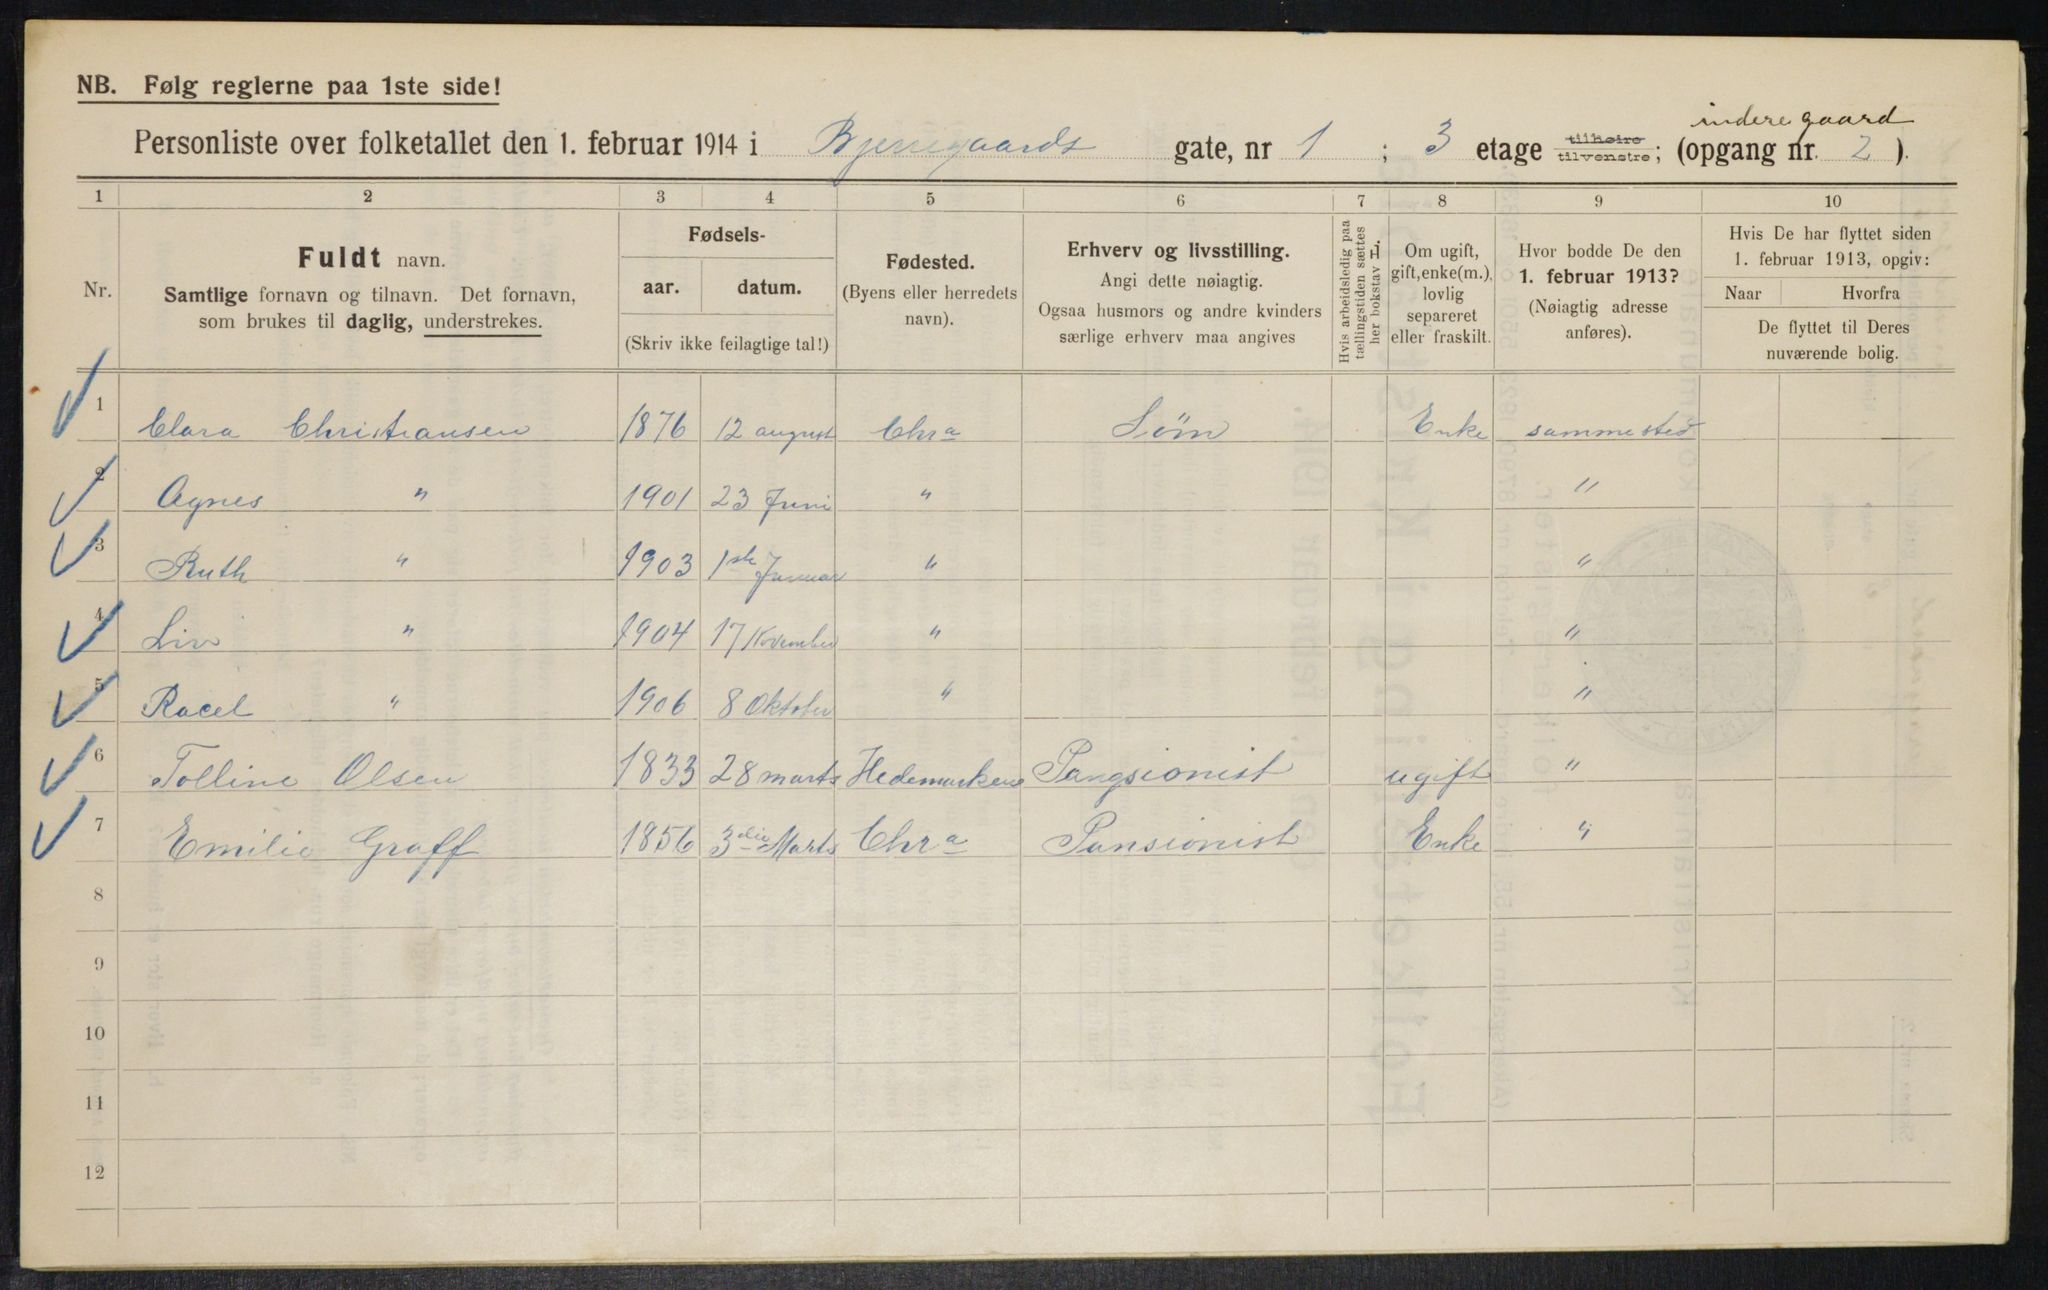 NB. Følg reglerne paa 1ste side!
indere gaard
Personliste over folketallet den 1. februar 1914 i Bjerregaards gate, nr 1 ; 3 etage tilhøire tilvenstre; (opgang nr. 2 ).
1 2 3 4 5 6 7 8 9 10
Nr.
Fuldt navn.
Samtlige fornavn og tilnavn. Det fornavn,
som brukes til daglig, understrekes.
Fødsels-
aar. datum.
(Skriv ikke feilagtige tal!)
Fødested.
(Byens eller herredets
navn).
Erhverv og livsstilling.
Angi dette nøiagtig.
Ogsaa husmors og andre kvinders
særlige erhverv maa angives
Hvis arbeidsledig paa
tællingstiden sættes
her bokstav L.
Om ugift,
gift, enke(m.),
lovlig
separeret
eller fraskilt.
Hvor bodde De den
1. februar 1913?
(Nøiagtig adresse
anføres).
Hvis De har flyttet siden
1. februar 1913, opgiv:
Naar Hvorfra
De flyttet til Deres
nuværende bolig.
1 Clara Christiansen 1876 12 august Chra Søm Enke sammested
2 Agnes " 1901 23 Juni " "
3 Ruth " 1903 1ste Januar " "
4 Liv " 1904 17 November " "
5 Racel " 1906 8 Oktober " "
6 Tolline Olsen 1833 28 marts Hedemarken Pangsionist ugift "
7 Emilie Graff 1856 3die Marts Chra Pansionist Enke "
8
9
10
11
12